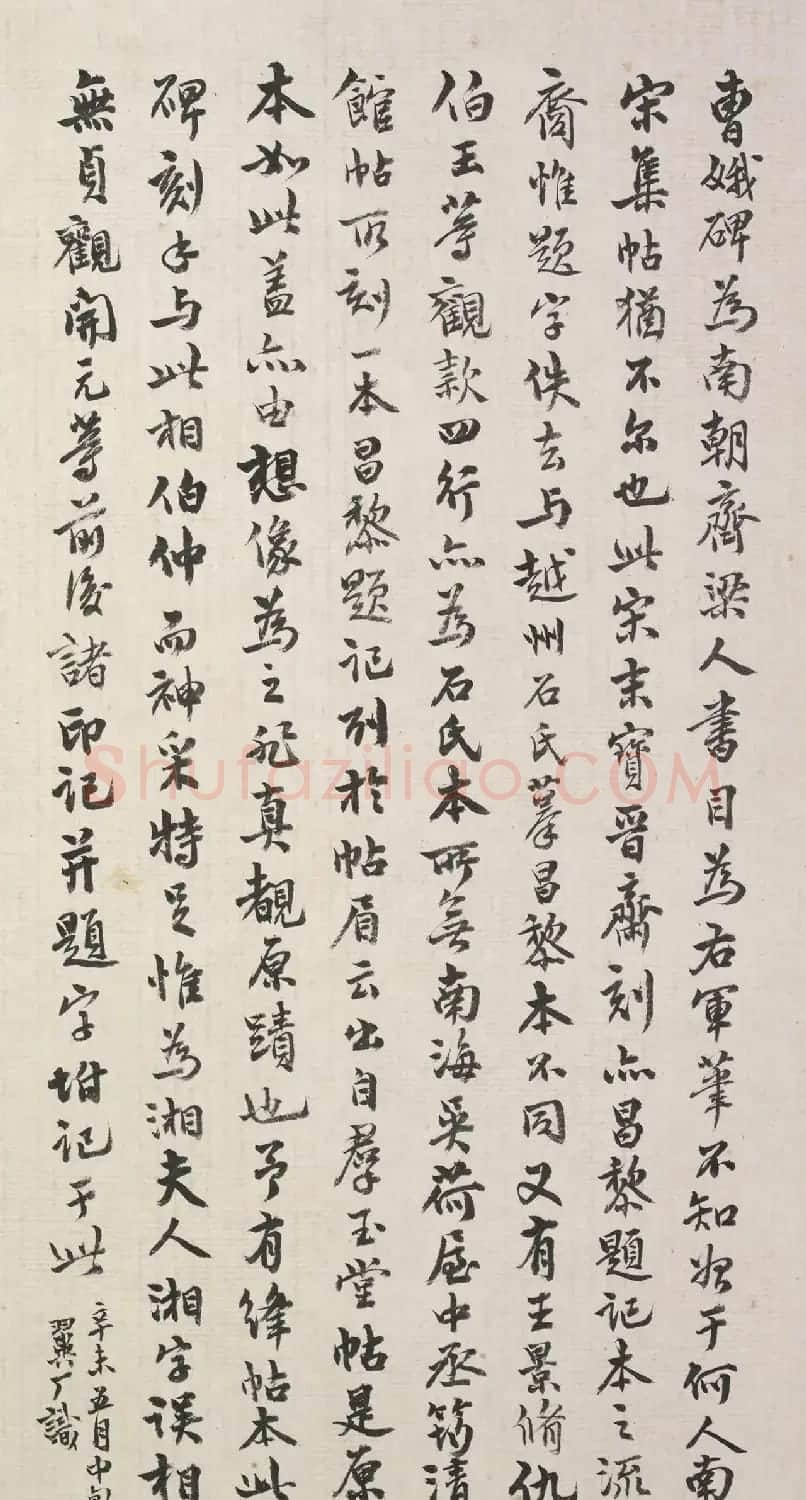 曹娥碑為南朝齊梁人書目為右軍筆不知始于何人南
宋集帖猶不尔也此宋末寶晉齋刻亦昌黎題記本之流
裔惟题字佚去与越州石氏摹昌黎本不同又有王景脩仇
伯玉等觀款四行亦為石氏本所無南海吳荷屋中丞筠清
館帖所刻一本昌黎题记列於帖眉云出自羣玉堂帖是原
本如此蓋亦由想像為之非真覩原蹟也予有絳帖本此
碑刻手与此相伯仲而神采特足惟為湘夫人湘字误相
無貞觀開元等前後諸印記并題字坿记于此
辛未五月中旬
翼厂識
Shufaziliao.COM